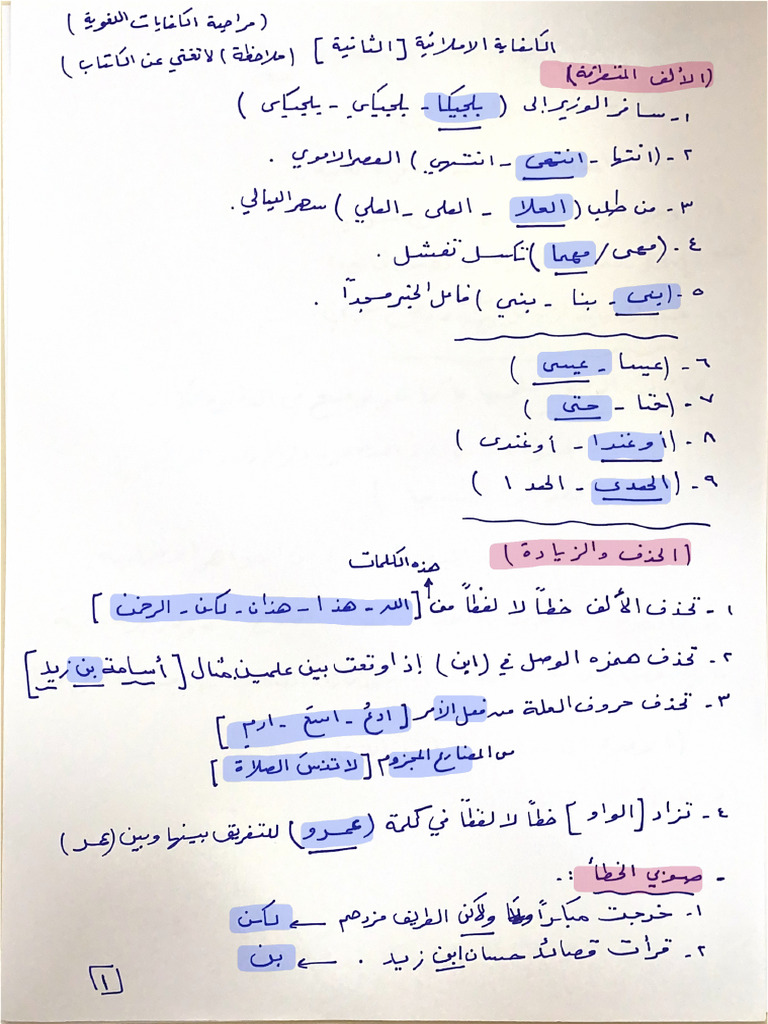 (مراجعة الكفايات اللغوية)
الكفاية الاملائية [الثانية] (ملاحظة) لا تغني عن الكتاب)
(الألف المتطرفة)
١- سافر الوزير إلى (بلجيكا - بلجيكاي - بلجيكاى)
٢- (انتها - انتهى - انتهي) العصر الاموي .
٣- من طلب (العلا - العلى - العلي) سهر الليالي.
٤- (مهمى / مهما) تكسل تفشل .
٥- (بنى - بنا - بني) فاعل الخير مسجدًا .
٦- (عيسا - عيسى)
٧- (حتا - حتى)
٨- (أوغندا - أوغندى)
٩- (الهدى - الهدا)
(الحذف والزيادة)
هذه الكلمات
١- تحذف الألف خطاً لا لفظاً من [الله - هذا - هذان - لكن - الرحمن]
٢- تحذف همزه الوصل في (ابن) إذا وقعت بين علمين. مثال [أسامة بن زيد]
٣- تحذف حروف العلة من فعل الأمر [ادعُ - اسعَ - ارمِ]
من المضارع المجزوم [لا تنسَ الصلاة]
٤- تزاد [الواو] خطاً لا لفظاً في كلمة (عمرو) للتفريق بينها وبين (عمر)
- صوبي الخطأ :-
١- خرجت مبكراً ولاكن الطريق مزدحم ← لكن
٢- قرأت قصائد حسان ابن زيد . ← بن
١